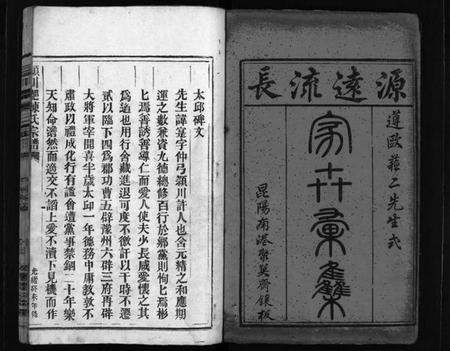 源遠流長
遵歐蘇二先生式
家乘彙集
昆陽南港聚英齋鐫板
太邱碑文
先生諱寔字仲弓潁川許人也含元精之和應期
運之數兼資九德總修百行於鄉黨則恂恂焉彬
彬焉善誘善導仁而愛人使夫少長咸愛懷之其
為道也用行舍藏進退可度不徼訐以干時不遷
貳以臨下四為郡功曹五辟豫州六辟三府再辟
大將軍宰聞喜半歲太邱一年德務中庸教敦不
肅政以禮成化行有謐會遭黨事禁錮二十年樂
天知命澹然而逸交不諂上愛不瀆下見機而作
光緒癸未年鐫